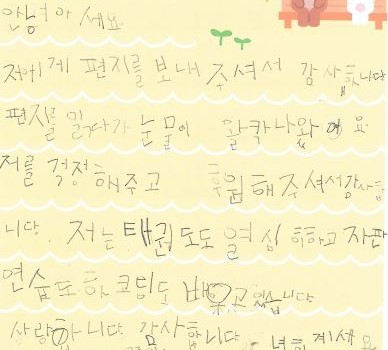 안녕하세요
저에게 편지를 보내 주셔서 감사합니다
편지를 읽다가 눈물이 왈칵나왔어요
저를 걱정해주고 후원해주셔서감사합
니다. 저는 태권도도 열심히하고 자판
연습도하고 코딩도 배우고있습니다
사랑합니다 감사합니다. 안녕히 계세요